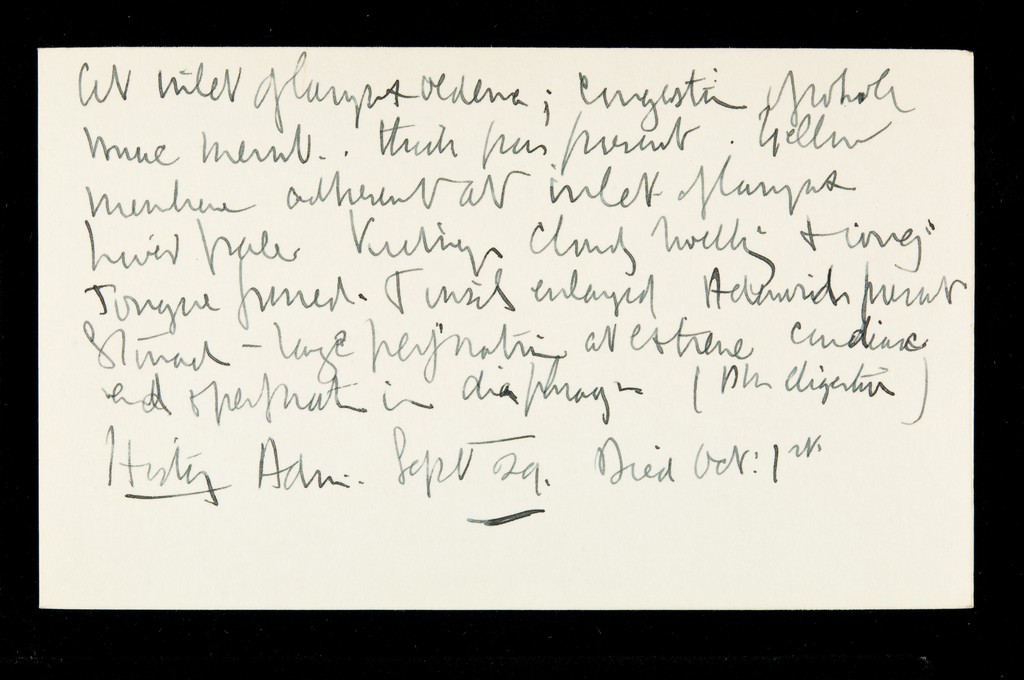 At inlet of larynx oedema; congestion of whole
muc memb.. thick pus present. Yellow
membrane adherent at inlet of larynx
Liver pale. Kidneys cloudy swelling & cong:
Tongue furred. Tonsils enlarged Adenoids present
Stomach - large perforation at extreme cardiac
end & perforation in diaphragm ( digestion)
History Adm. Sept 29. Died Oct: 1st